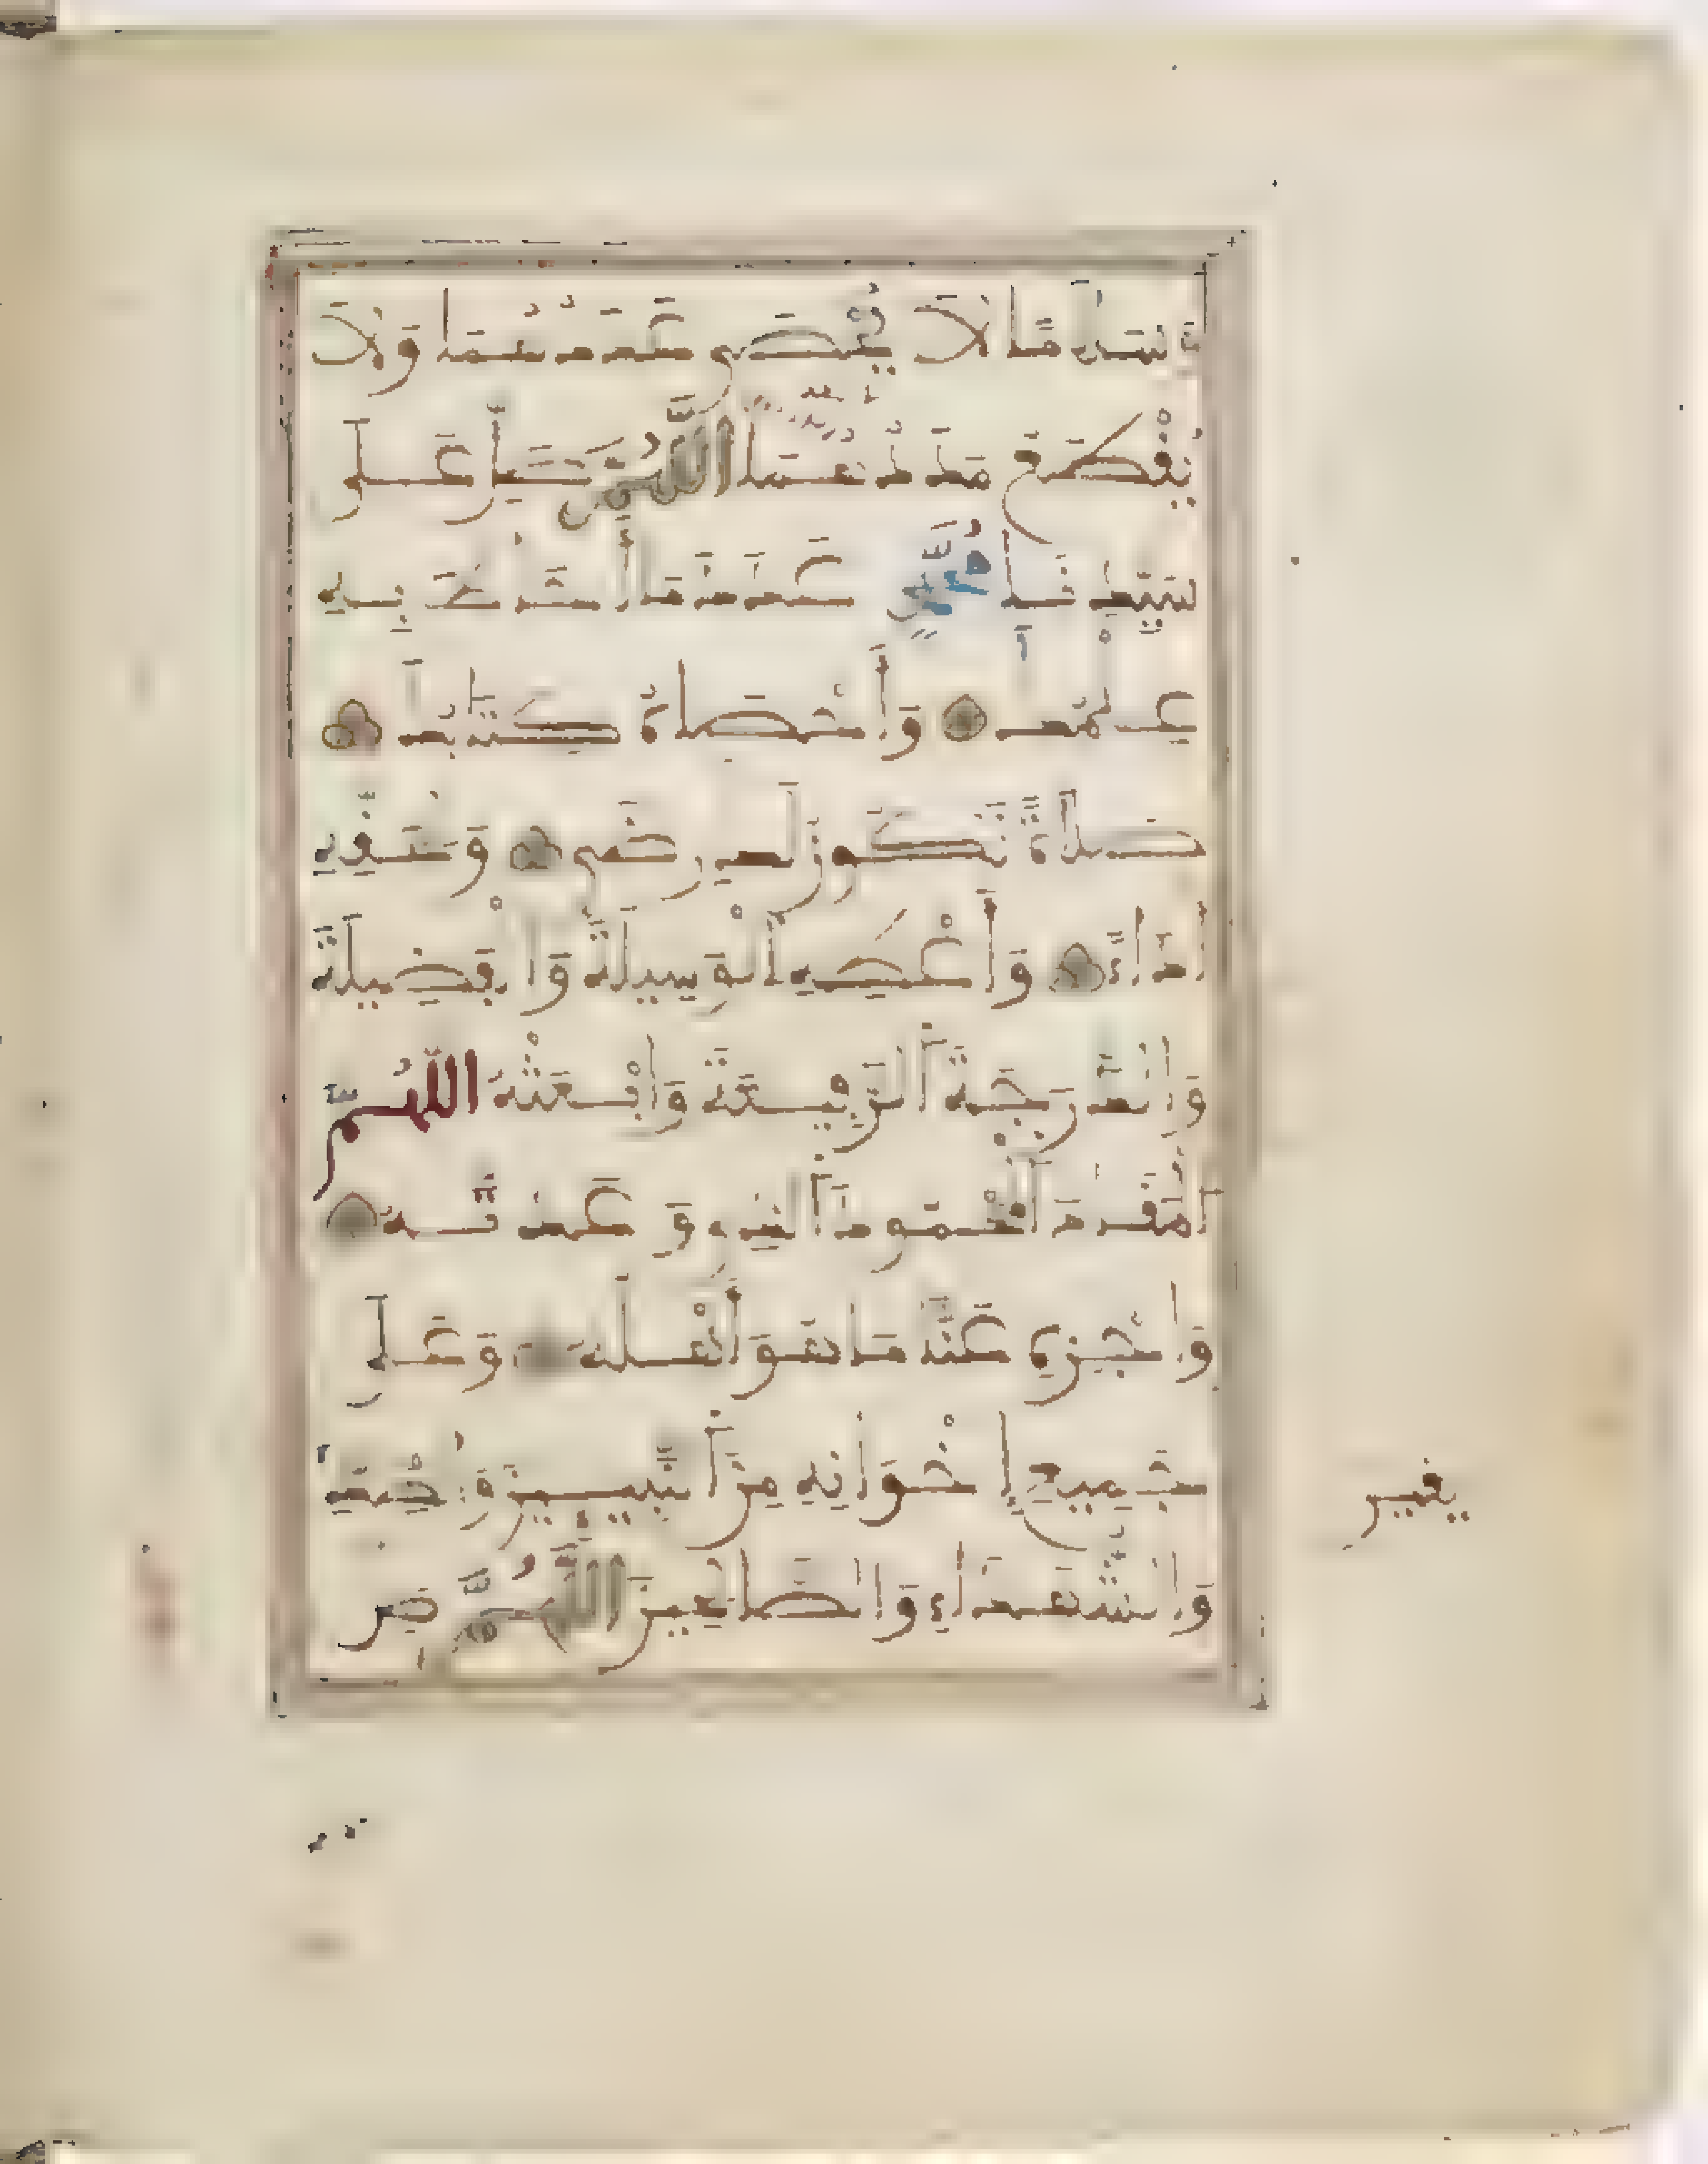 صلاة دائمة لا ينقضي عددها ولا
يقطع مددها اللهم صل على
سيدنا محمد عدد ما أحاط به
علمك وأحصاه كتابك
صلاة تكون لك رضى ولحقه
أداء وأعطه الوسيلة والفضيلة
والدرجة الرفيعة وابعثه اللهم
المقام المحمود الذي وعدته
واجزه عنا ما هو أهله وعلى
جميع إخوانه من النبيين والصديقين
والشهداء والصالحين اللهم صل